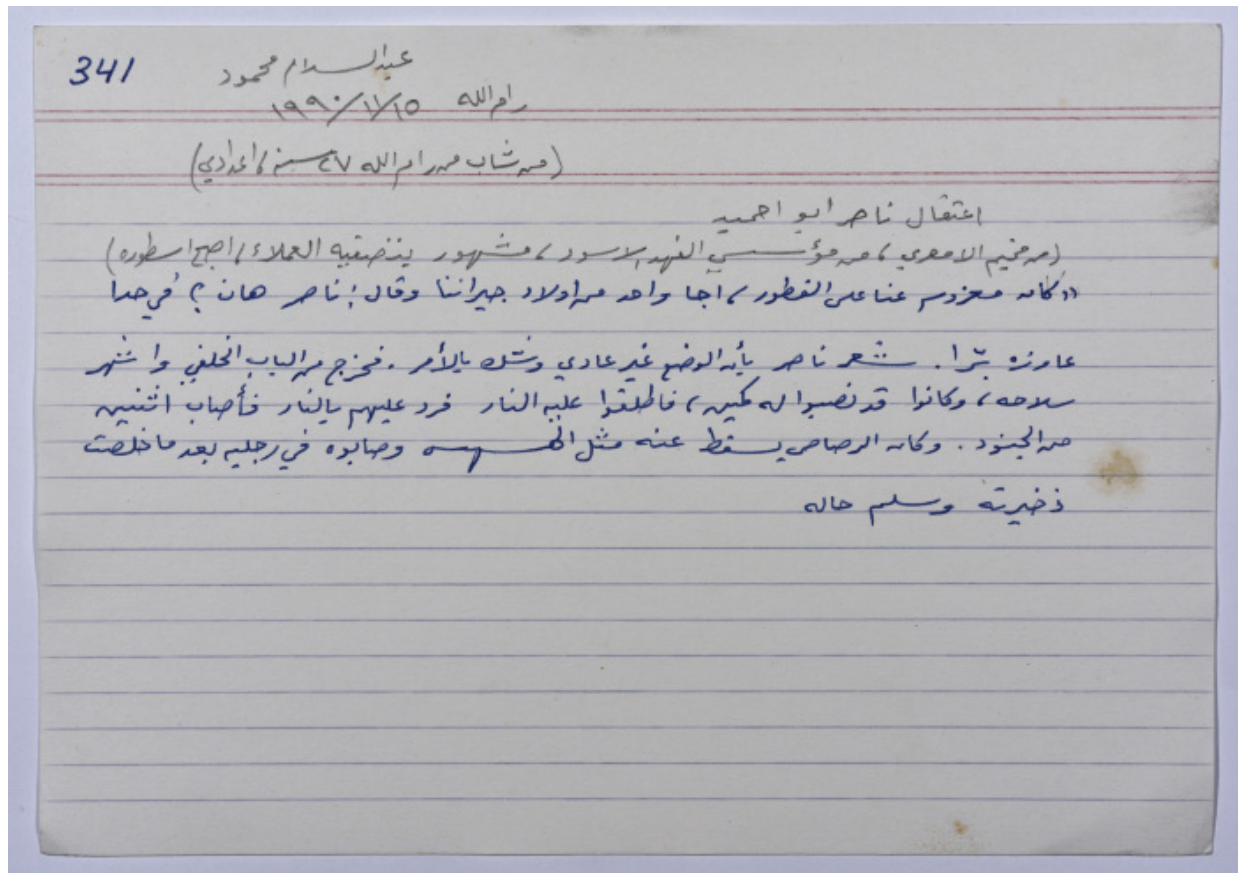 341
عبد السلام محمود
رام الله ١٥/١١/١٩٩٠
(من شاب من رام الله ٢٧ سنة، اعدادي)
اعتقال ناصر ابو احميد
(من مخيم الامعري، من مؤسسي الفهد الاسود، مشهور بتصفية العملاء، اصبح اسطوره)
"كان معزوم عنا على الفطور، اجا واحد من اولاد جيراننا وقال: ناصر هان؟ في حدا
عاوزه برّا. شعر ناصر بأن الوضع غير عادي وشك بالأمر. فخرج من الباب الخلفي واشهر
سلاحه، وكانوا قد نصبوا له كمين، فاطلقوا عليه النار فرد عليهم بالنار فأصاب اثنين
من الجنود. وكان الرصاص يسقط عنه مثل وصابوه في رجليه بعد ما خلصت
ذخيرته وسلم حاله